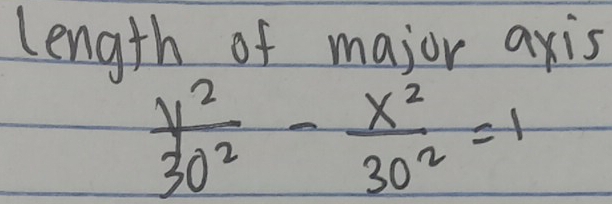 length of major axis
y²/30² - x²/30² = 1